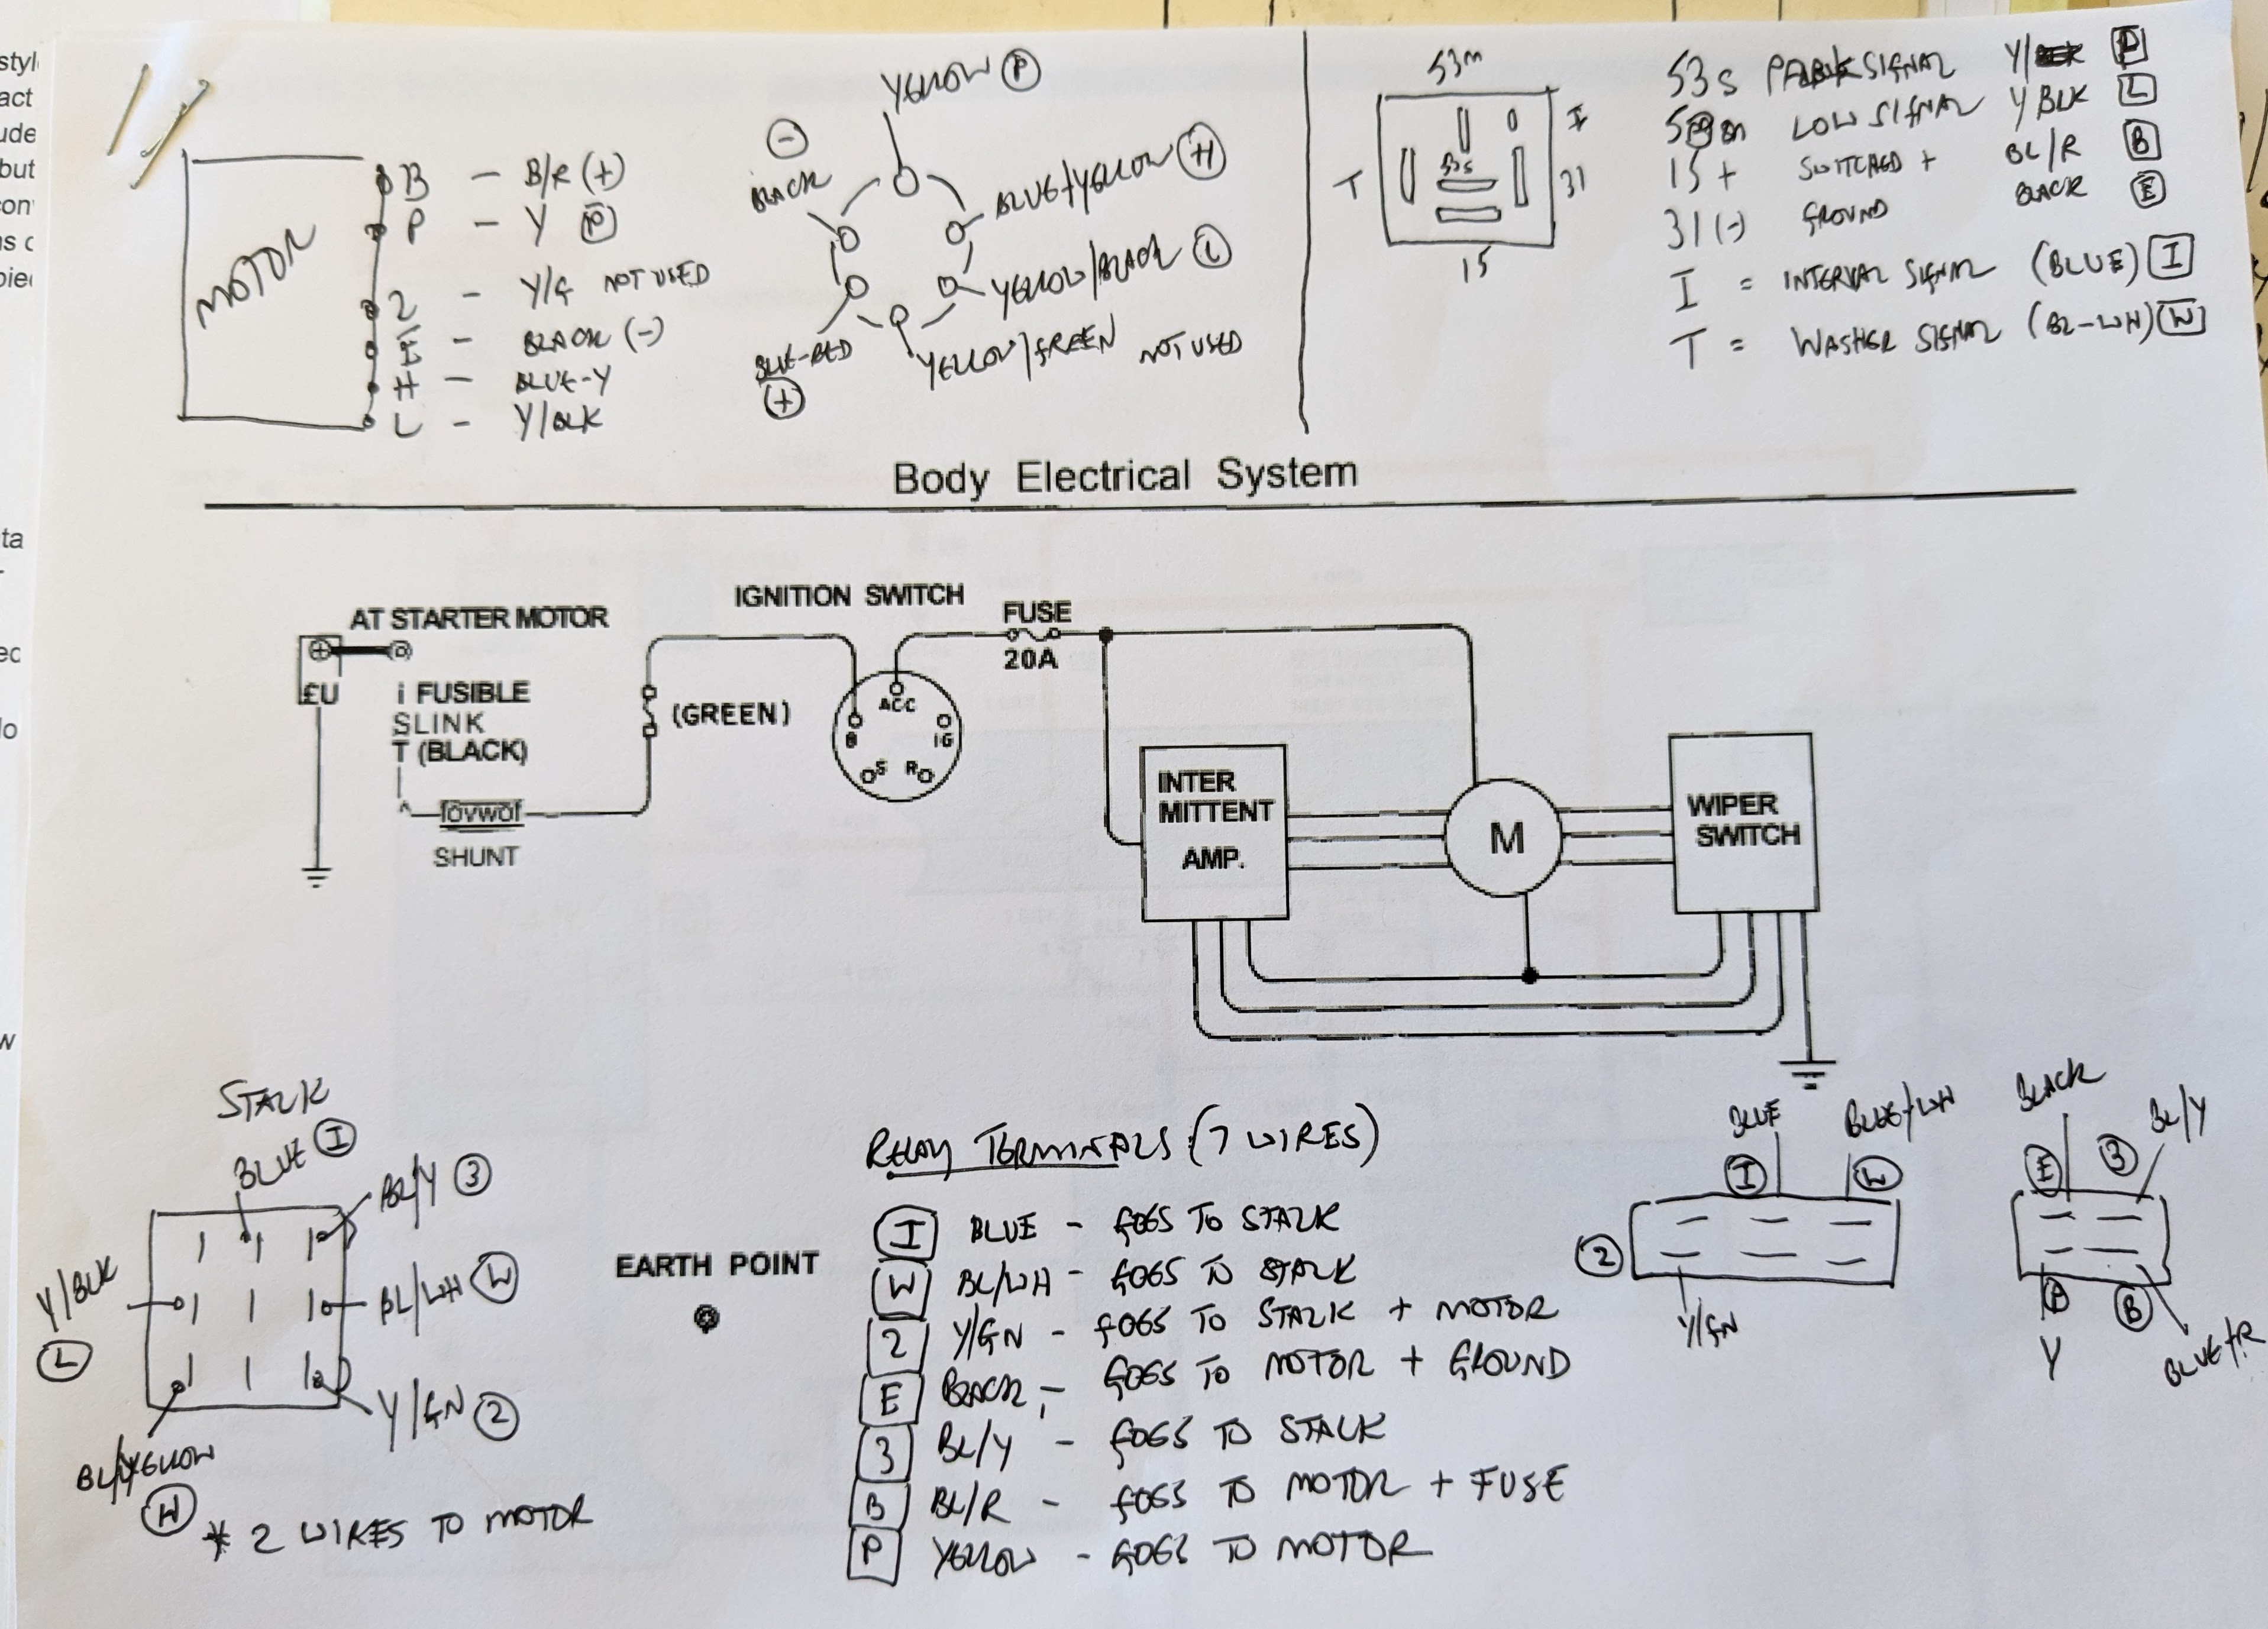 MOTOR
B - B/R (+)
P - Y (P)
2 - Y/G NOT USED
E - BLACK (-)
H - BLUE-Y
L - Y/BLK
YELLOW (P)
-
BLACK
BLUE/YELLOW (H)
YELLOW/BLACK (L)
YELLOW/GREEN NOT USED
BLUE-RED
+
53m
I
T
53s
31
15
53s SIGNAL Y/ P
LOW SIGNAL Y BLK L
15+ SWITCHED + BL/R B
31(-) GROUND BLACK E
I = INTERVAL SIGNAL (BLUE) I
T = WASHER SIGNAL (BL-WH) W
Body Electrical System
IGNITION SWITCH
AT STARTER MOTOR
FUSE
20A
£U
i FUSIBLE
SLINK
T (BLACK)
(GREEN)
ACC
B
IG
S R
^
fovwof
SHUNT
INTER
MITTENT
AMP.
M
WIPER
SWITCH
STALK
BLUE (I)
BL/Y (3)
Y/BLK
L
BL/WH (W)
Y/GN (2)
BL/YELLOW
H
* 2 WIRES TO MOTOR
EARTH POINT
RELAY TERMINALS (7 WIRES)
I BLUE - GOES TO STALK
W BL/WH - GOES TO STALK
2 Y/GN - GOES TO STALK + MOTOR
E BLACK - GOES TO MOTOR + GROUND
3 BL/Y - GOES TO STALK
B BL/R - GOES TO MOTOR + FUSE
P YELLOW - GOES TO MOTOR
BLUE
BLUE/WH
I
W
2
Y/GN
BLACK
BL/Y
E
3
P
B
Y
BLUE/R